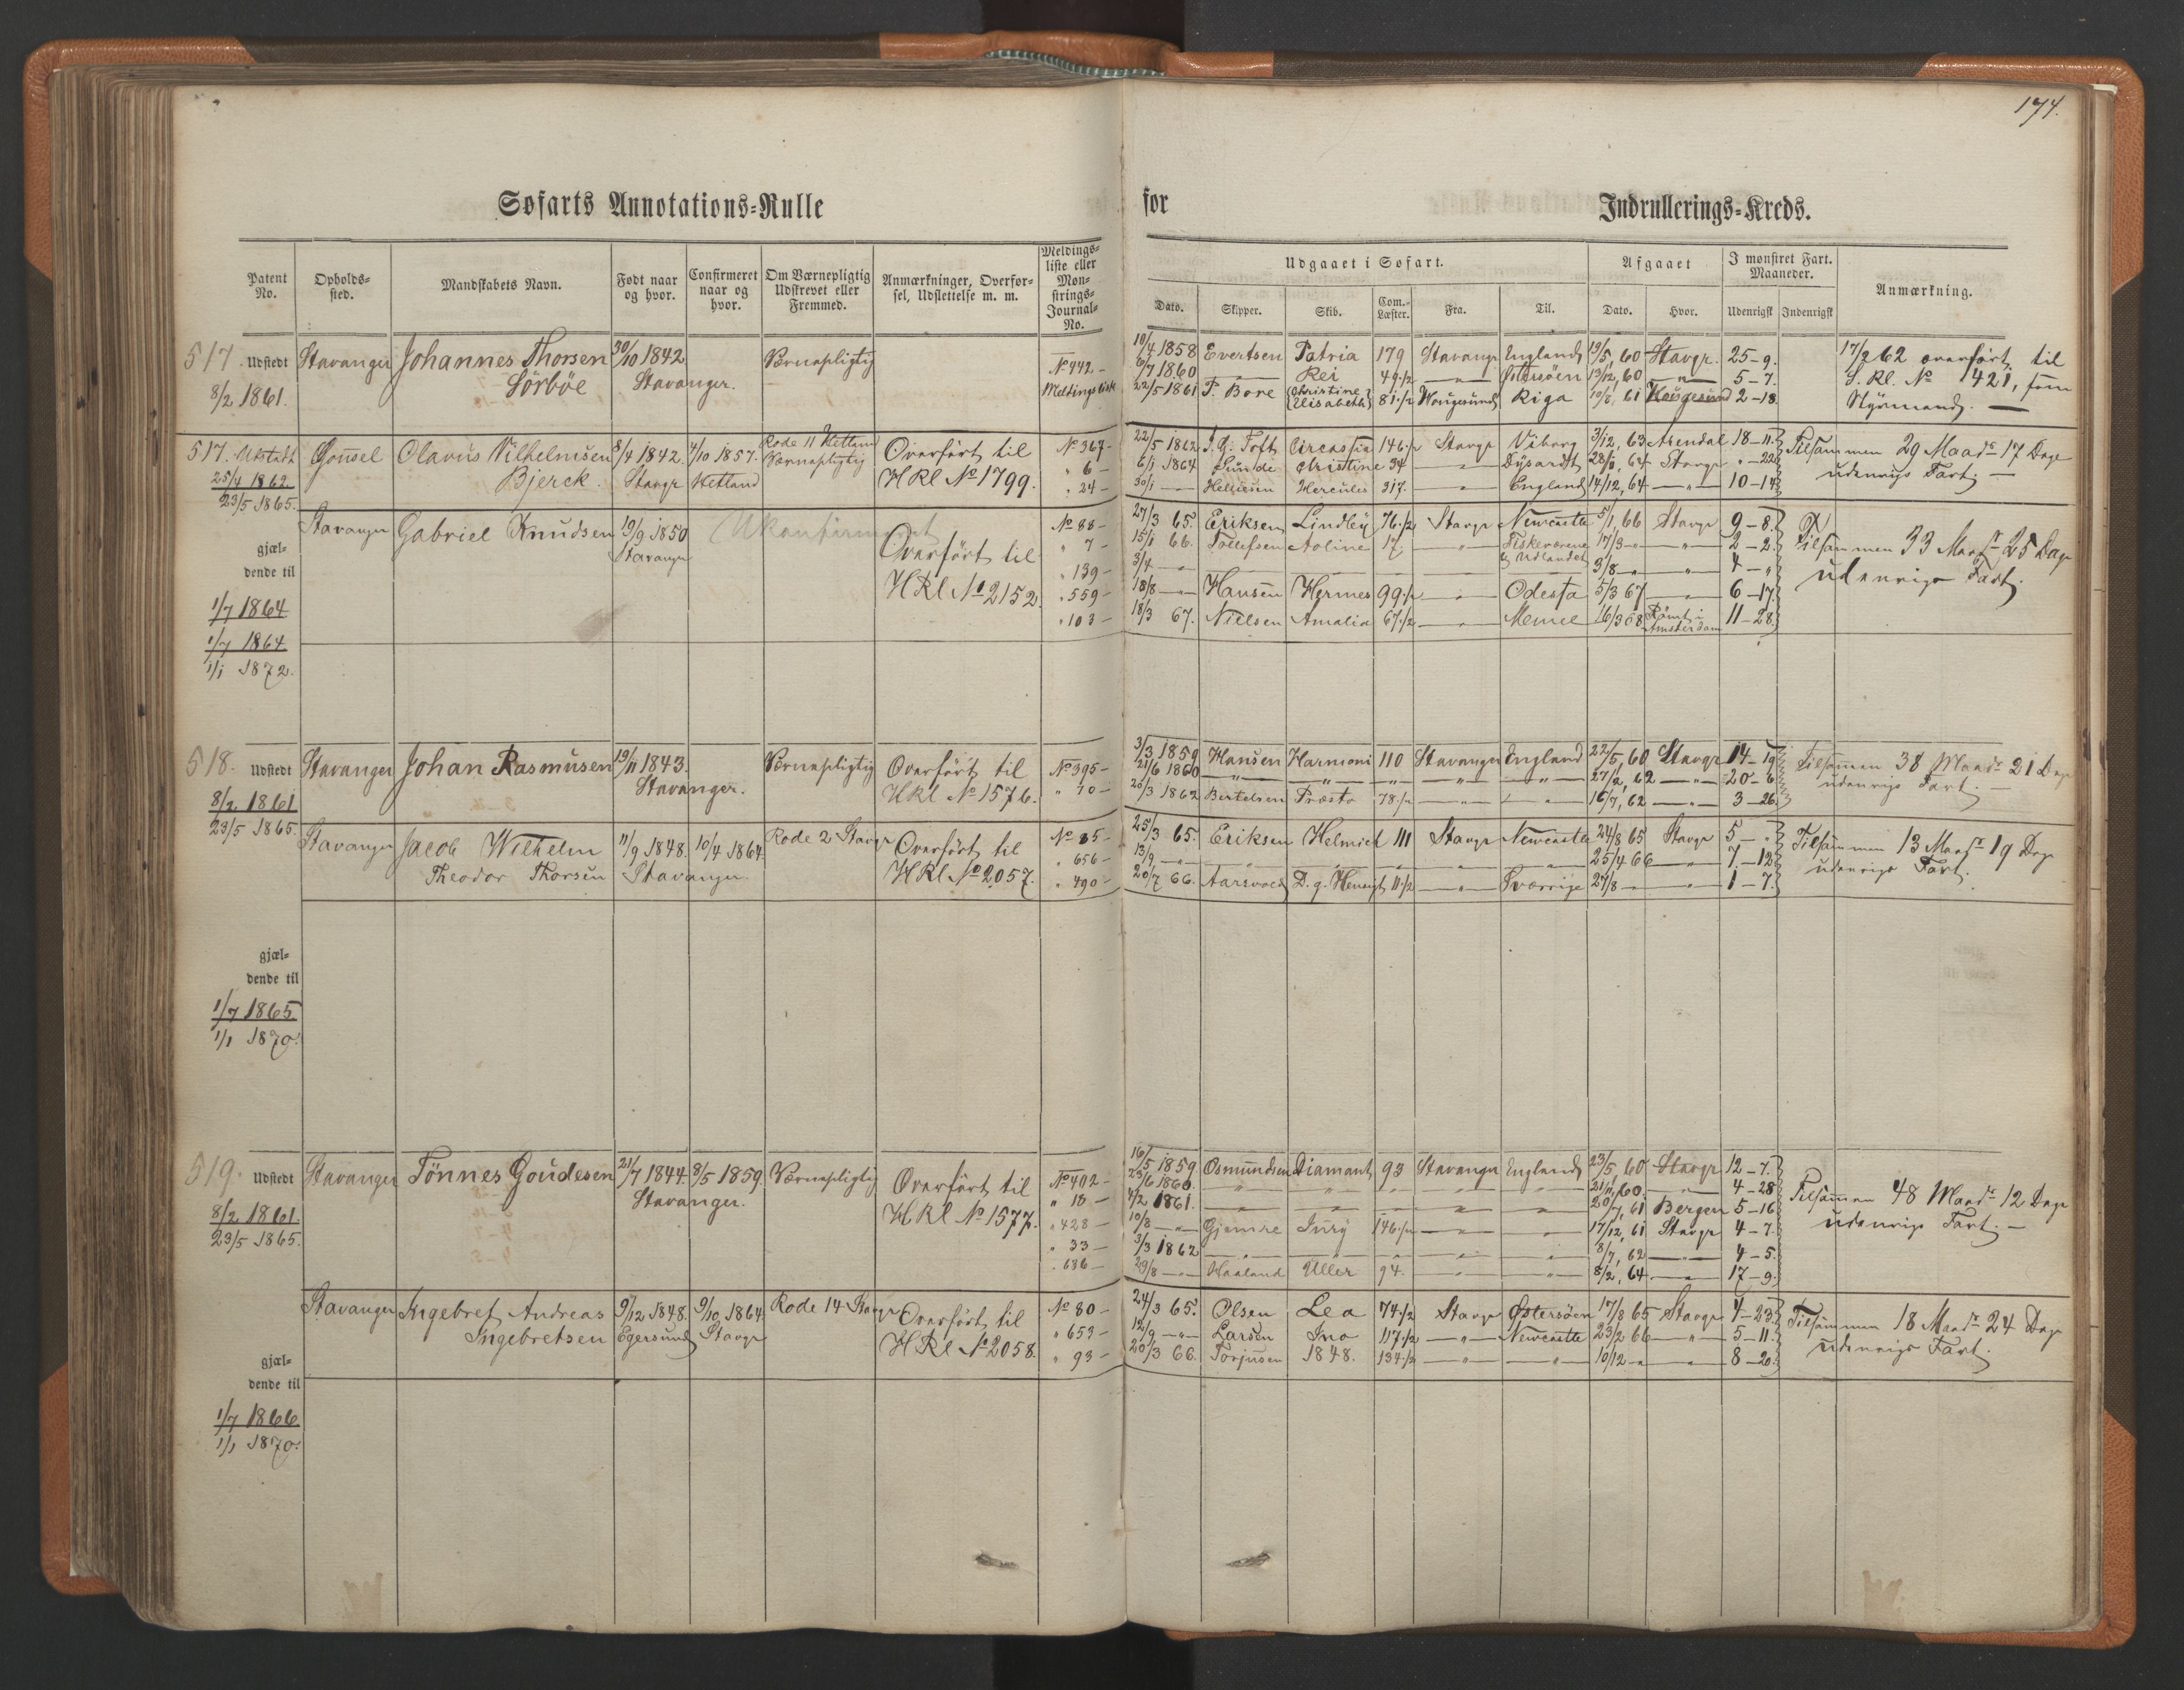 174.
Søfarts Annotations=Rulle for Indrullerings=Kreds.
Patent No. | Opholds=sted. | Mandskabets Navn. | Født naar og hvor. | Confirmeret naar og hvor. | Om Værnepligtig Udskrevet eller Fremmed. | Anmærkninger, Overfør=sel, Udslettelse m. m. | Meldings=liste eller Møn=strings=Journal=No.
Udgaaet i Søfart. | Afgaaet | I mønstret Fart. Maaneder. | Anmærkning.
Dato. | Skipper. | Skib. | Com.=Læster. | Fra. | Til. | Dato. | Hvor. | Udenrigsk | Indenrigsk
517. Udstedt Stavanger Johannes Thorsen 30/10 1842 Værnepligtig
8/2 1861. Sörböe Stavanger. No 442 - Meldingsliste
10/4 1858 Evertsen Patria 179 Stavangr England 19/5, 60 Stavgr. 25-9.
6/7 1860 — Rei 49 1/2 — Østersøen 13/12, 60 — 5-7.
22/5 1861 T. Bore Christine Elisabeth 81 1/2 Hougesund Riga 10/8, 61 Hougesund 2-18.
17/2 62 overført til
S. Rl. No 421, som
Styrmand. —
517. Udstedt Olavus Vilhelmsen 8/4 1842. 4/10 1857. Rode 11 Hetland Overført til No 367-
25/4 1862 Bjerck. Stavgr Hetland Værnepligtig HRl No 1799. " 6-
23/5 1865. " 24-
22/5 1862 Toft Circassia 146 1/2 Stavgr Viborg 3/12, 63 Arendal 18-11.
6/1 1864 Lunde Christine 34 — Dysardt 28/1, 64 Stavgr "-22
30/1 — Helliesen Hercules 317. — England 14/12, 64 — 10-14
Tilsammen 29 Maadr 17 Dage
udenrigs Fart. —
Stavanger Gabriel Knudsen 19/9 1850 Ukonfirmeret No 88-
Stavanger Overført til " 7-
gjæl=
dende til HRl No 2152. " 139-
1/7 1864 " 559-
1/7 1864 " 103-
1/1 1872.
27/3 65. Eriksen Lindley 76 1/2 Stavgr Newcastle 5/1, 66 Stavgr 9-8.
15/1 66. Tollefsen Aoline 17 — Fiskeværene & Udlandet 17/3 — 2-2.
3/4 — 3/8 — 4-"
18/8 — Hansen Hermes 99 1/2 — Odessa 5/3 67 — 6-17
18/3 67. Nielsen Amalia 67 1/2 — Memel 16/3 68 Rømt i Amsterdam 11-28.
Tilsammen 33 Maadr 25 Dage
udenrigs Fart.
518. Udstedt Stavanger Johan Rasmusen 19/11 1843. Værnepligtig Overført til No 395-
8/2 1861 Stavanger. HRl No 1576. " 70-
23/5 1865.
3/3 1859 Hansen Harmoni 110 Stavanger England 22/5, 60 Stavgr 14-19
21/6 1860 " " " " " 27/2, 62 — 20-6
20/3 1862 Bertelsen Præsto 78 1/2 — 16/7, 62 — 3-26.
Tilsammen 38 Maadr 21 Dage
udenrigs Fart. —
Stavanger Jacob Wilhelm 11/9 1848. 10/4 1864. Rode 2 Stavgr Overført til No 85-
Theodor Thorsen Stavanger. HRl No 2057. " 656-
" 490-
25/3 65. Eriksen Helmich 111 Stavgr Newcastle 24/8 65 Stavgr 5-"
13/9 — 25/4 66 — 7-12
20/7 66. Aarsvold D. g. Hensigt 11 1/2 — Sværrige 27/8 — 1-7.
Tilsammen 13 Maadr 19 Dge
udenrigs Fart.
gjæl=
dende til
1/7 1865
1/1 1870.
519. Udstedt Stavanger Tönnes Goudesen 21/7 1844. 8/5 1859. Værnepligtig Overført til No 402-
8/2 1861. Stavanger. HRl No 1577. " 18-
23/5 1865. " 428-
" 33-
" 636-
16/5 1859 Osmundsen Diamant 93 Stavanger England 23/5, 60 Stavgr 12-7.
23/6 1860. " " " " " 21/11, 60. " 4-28
4/2 1861. — 20/7, 61 Bergen 5-16
10/8 — Gjemre Jury 146 1/2 — 17/12, 61 Stavgr 4-7.
3/3 1862 — 8/7, 62 — 4-5.
29/8 — Haaland Uller 94. — 8/2, 64 — 17-9.
Tilsammen 48 Maadr 12 Dage
udenrigs Fart. —
Stavanger Ingebret Andreas 9/12 1848. 9/10 1864. Rode 14 Stavgr Overført til No 80-
Ingebretsen Egersund Stavgr HRl No 2058. " 653-
" 93-
24/3 65. Olsen Lea 74 1/2 Stavgr Østersøen 17/8 65 Stavgr 4-23
12/9 — Larsen Ino 117 1/2 — Newcastle 23/2 66 — 5-11.
20/3 66. Torjusen 1848. 134 1/2 — 10/12 — 8-20.
Tilsammen 18 Maadr 24 Dage
udenrigs Fart.
gjæl=
dende til
1/7 1866
1/1 1870.